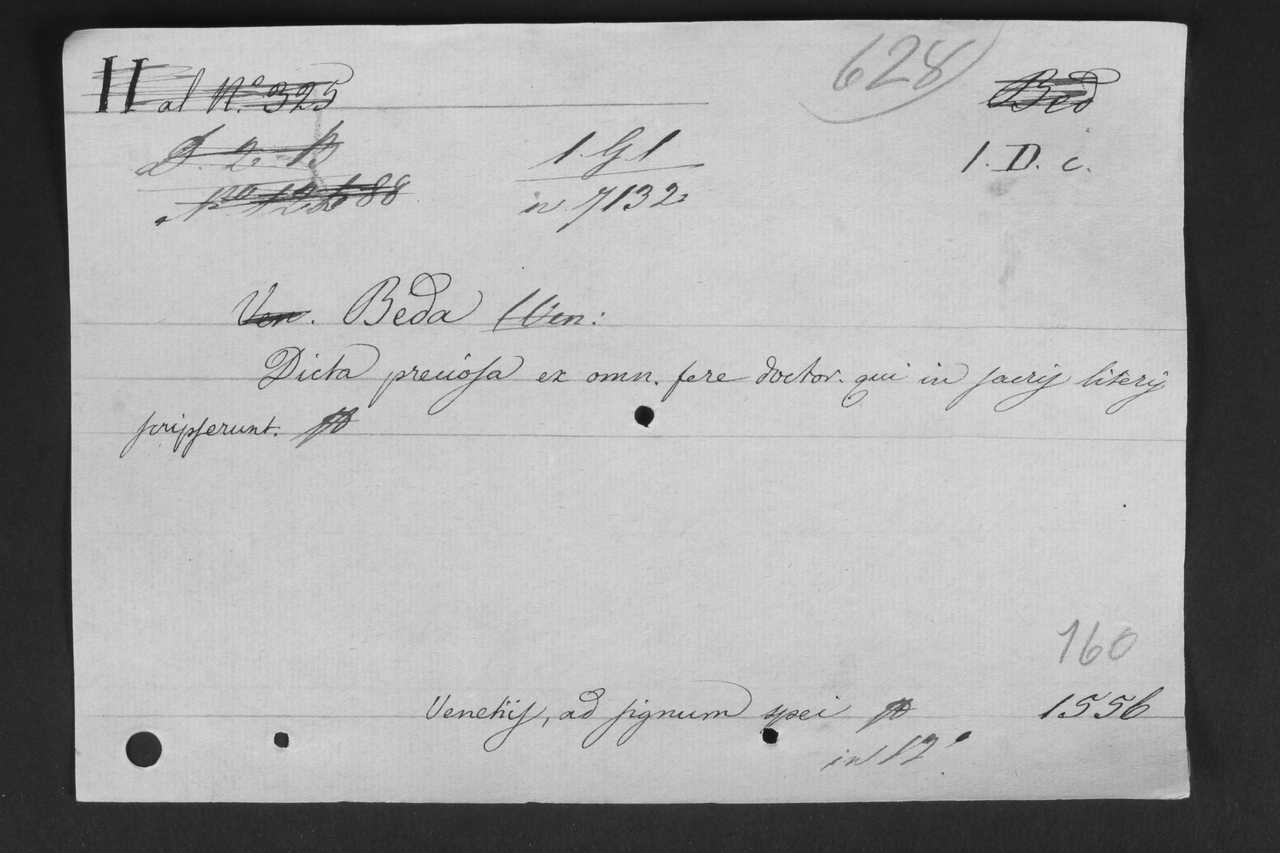 II al No 325
628
Bed
D. 2. B
1. G. 1
1. D. c.
No 12688
n. 7132
Ven. Beda (Ven:
Dicta preciosa ex omn. fere doctor. qui in sacris literis
scripserunt.
160
Venetiis, ad signum spei 1556
in 12°